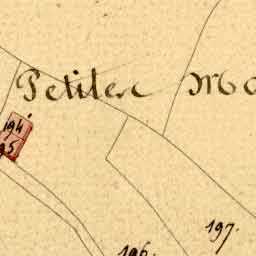 Petiler Mo
194
95
197.
196.